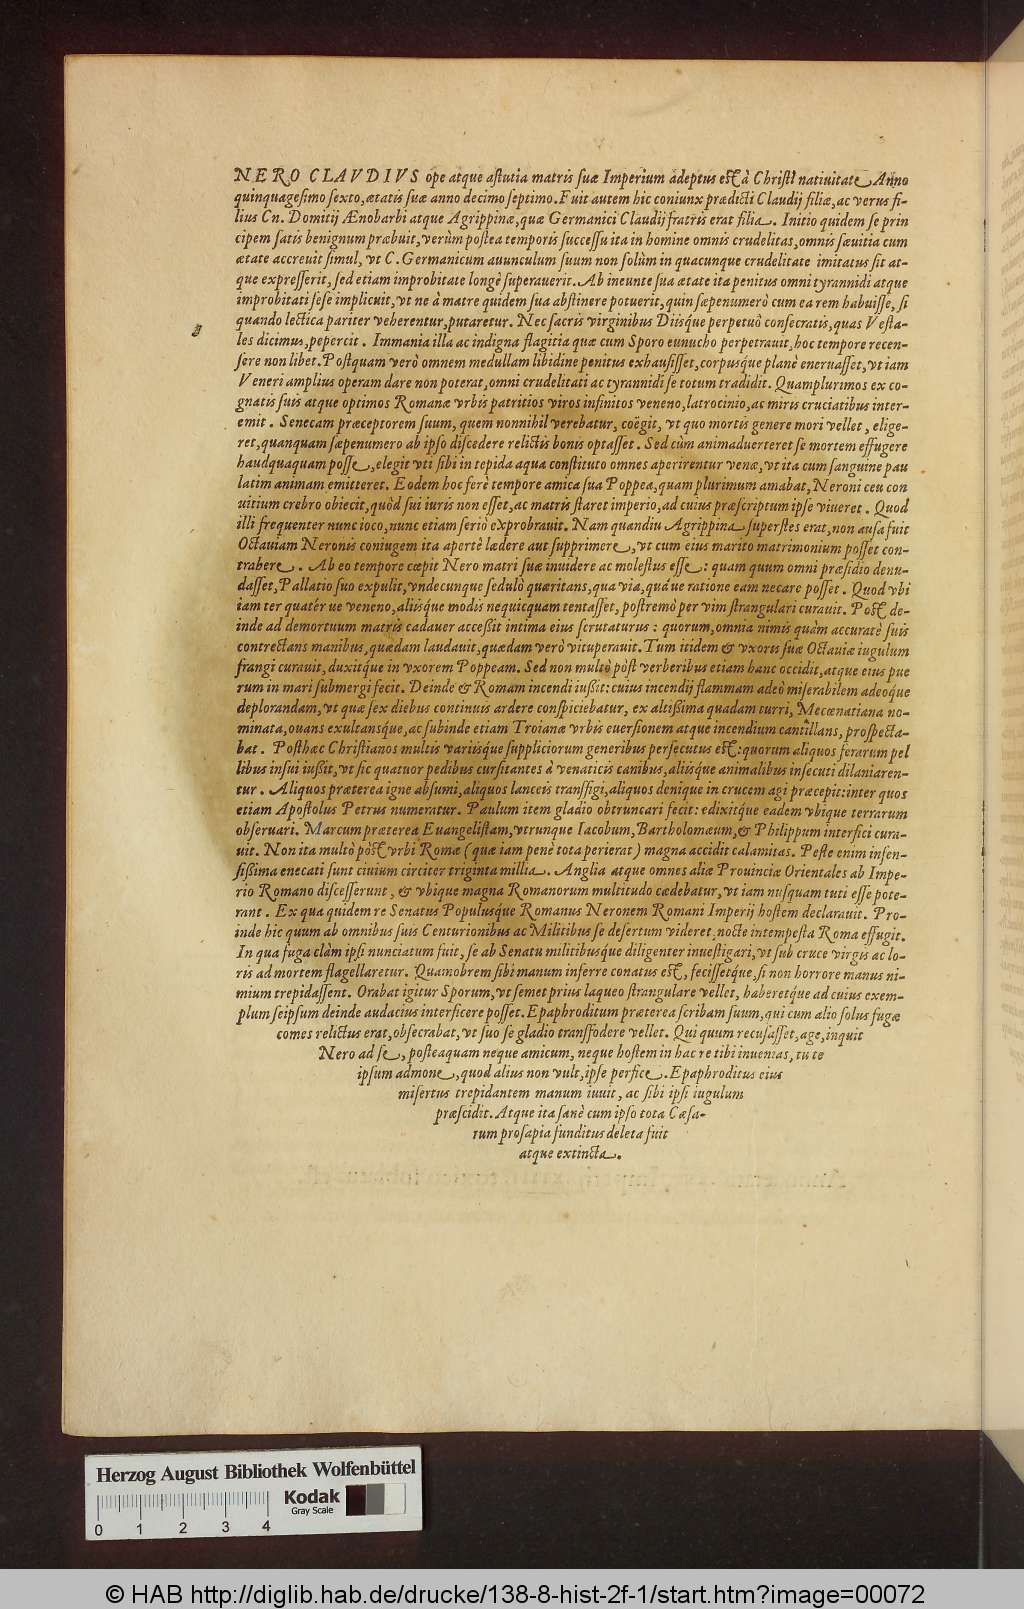 NERO CLAVDIVS ope atque astutia matris suæ Imperium adeptus est à Christi natiuitate Anno
quinquagesimo sexto, ætatis suæ anno decimo septimo. Fuit autem hic coniunx prædicti Claudij filiæ, ac verus fi-
lius Cn. Domitij Ænobarbi atque Agrippinæ, quæ Germanici Claudij fratris erat filia. Initio quidem se prin
cipem satis benignum præbuit, verùm postea temporis successu ita in homine omnis crudelitas, omnis sæuitia cum
ætate accreuit simul, vt C. Germanicum auunculum suum non solùm in quacunque crudelitate imitatus sit at-
que expresserit, sed etiam improbitate longè superauerit. Ab ineunte sua ætate ita penitus omni tyrannidi atque
improbitati sese implicuit, vt ne à matre quidem sua abstinere potuerit, quin sæpenumerò cum ea rem habuisse, si
quando lectica pariter veherentur, putaretur. Nec sacris virginibus Diisq́ue perpetuò consecratis, quas Vesta-
les dicimus, pepercit. Immania illa ac indigna flagitia quæ cum Sporo eunucho perpetrauit, hoc tempore recen-
sere non libet. Postquam verò omnem medullam libidine penitus exhausisset, corpusq́ue planè eneruasset, vt iam
Veneri amplius operam dare non poterat, omni crudelitati ac tyrannidi se totum tradidit. Quamplurimos ex co-
gnatis suis atque optimos Romanæ vrbis patritios viros infinitos veneno, latrocinio, ac miris cruciatibus inter-
emit. Senecam præceptorem suum, quem nonnihil verebatur, coëgit, vt quo mortis genere mori vellet, elige-
ret, quanquam sæpenumero ab ipso discedere relictis bonis optasset. Sed cùm animaduerteret se mortem effugere
haudquaquam posse, elegit vti sibi in tepida aqua constituto omnes aperirentur venæ, vt ita cum sanguine pau
latim animam emitteret. Eodem hoc ferè tempore amica sua Poppea, quam plurimum amabat, Neroni ceu con
uitium crebro obiecit, quòd sui iuris non esset, ac matris staret imperio, ad cuius præscriptum ipse viueret. Quod
illi frequenter nunc ioco, nunc etiam seriò exprobrauit. Nam quandiu Agrippina superstes erat, non ausa fuit
Octauiam Neronis coniugem ita apertè lædere aut supprimere, vt cum eius marito matrimonium posset con-
trahere. Ab eo tempore cœpit Nero matri suæ inuidere ac molestus esse: quam quum omni præsidio denu-
dasset, Pallatio suo expulit, vndecunque sedulò quæritans, qua via, quáue ratione eam necare posset. Quod vbi
iam ter quatérue veneno, aliisq́ue modis nequicquam tentasset, postremò per vim strangulari curauit. Post de-
inde ad demortuum matris cadauer accessit intima eius scrutaturus: quorum, omnia nimis quàm accuratè suis
contrectans manibus, quædam laudauit, quædam verò vituperauit. Tum itidem & vxoris suæ Octauiæ iugulum
frangi curauit, duxitq́ue in vxorem Poppeam. Sed non multò pòst verberibus etiam hanc occidit, atque eius pue
rum in mari submergi fecit. Deinde & Romam incendi iussit: cuius incendij flammam adeò miserabilem adeoque
deplorandam, vt quæ sex diebus continuis ardere conspiciebatur, ex altissima quadam turri, Mecœnatiana no-
minata, ouans exultansq́ue, ac subinde etiam Troianæ vrbis euersionem atque incendium cantillans, prospecta-
bat. Posthæc Christianos multis variisq́ue suppliciorum generibus persecutus est: quorum aliquos ferarum pel
libus insui iussit, vt sic quatuor pedibus cursitantes à venaticis canibus, aliisq́ue animalibus insecuti dilaniaren-
tur. Aliquos præterea igne absumi, aliquos lanceis transfigi, aliquos denique in crucem agi præcepit: inter quos
etiam Apostolus Petrus numeratur. Paulum item gladio obtruncari fecit: edixitq́ue eadem vbique terrarum
obseruari. Marcum præterea Euangelistam, vtrunque Iacobum, Bartholomæum, & Philippum interfici cura-
uit. Non ita multò pòst vrbi Romæ (quæ iam penè tota perierat) magna accidit calamitas. Peste enim infen-
sissima enecati sunt ciuium circiter triginta millia. Anglia atque omnes aliæ Prouinciæ Orientales ab Impe-
rio Romano discesserunt, & vbique magna Romanorum multitudo cædebatur, vt iam nusquam tuti esse pote-
rant. Ex qua quidem re Senatus Populusq́ue Romanus Neronem Romani Imperij hostem declarauit. Pro-
inde hic quum ab omnibus suis Centurionibus ac Militibus se desertum videret, nocte intempesta Roma effugit.
In qua fuga clàm ipsi nunciatum fuit, se ab Senatu militibusq́ue diligenter inuestigari, vt sub cruce virgis ac lo-
ris ad mortem flagellaretur. Quamobrem sibi manum inferre conatus est, fecissetq́ue, si non horrore manus ni-
mium trepidassent. Orabat igitur Sporum, vt semet prius laqueo strangulare vellet, haberetq́ue ad cuius exem-
plum seipsum deinde audacius interficere posset. Epaphroditum præterea scribam suum, qui cum alio solus fugæ
comes relictus erat, obsecrabat, vt suo se gladio transfodere vellet. Qui quum recusasset, age, inquit
Nero ad se, posteaquam neque amicum, neque hostem in hac re tibi inuenias, tu te
ipsum admone, quod alius non vult, ipse perfice. Epaphroditus eius
misertus trepidantem manum iuuit, ac sibi ipsi iugulum
præscidit. Atque ita sanè cum ipso tota Cæsa-
rum prosapia funditus deleta fuit
atque extincta.
Herzog August Bibliothek Wolfenbüttel
Kodak
Gray Scale
0 1 2 3 4
© HAB http://diglib.hab.de/drucke/138-8-hist-2f-1/start.htm?image=00072